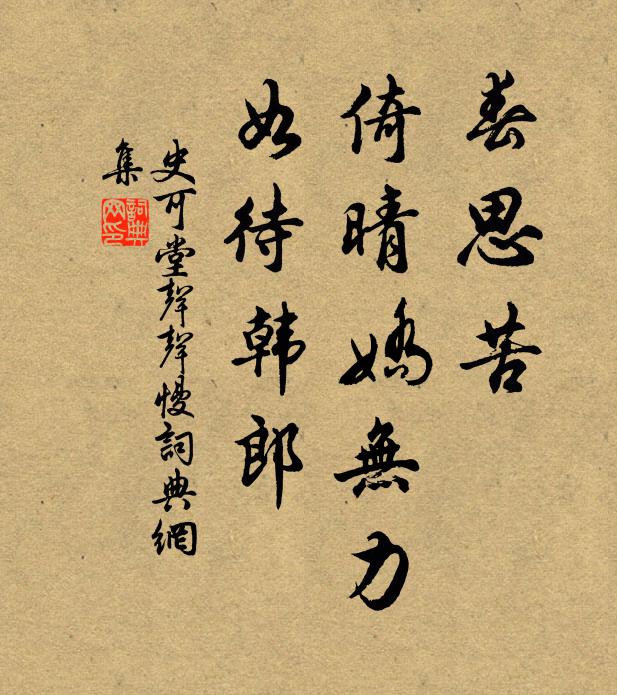 春思苦
倚晴嬌無力
如待韩郎
史可堂聲聲慢詞典網
集
詞典
网印